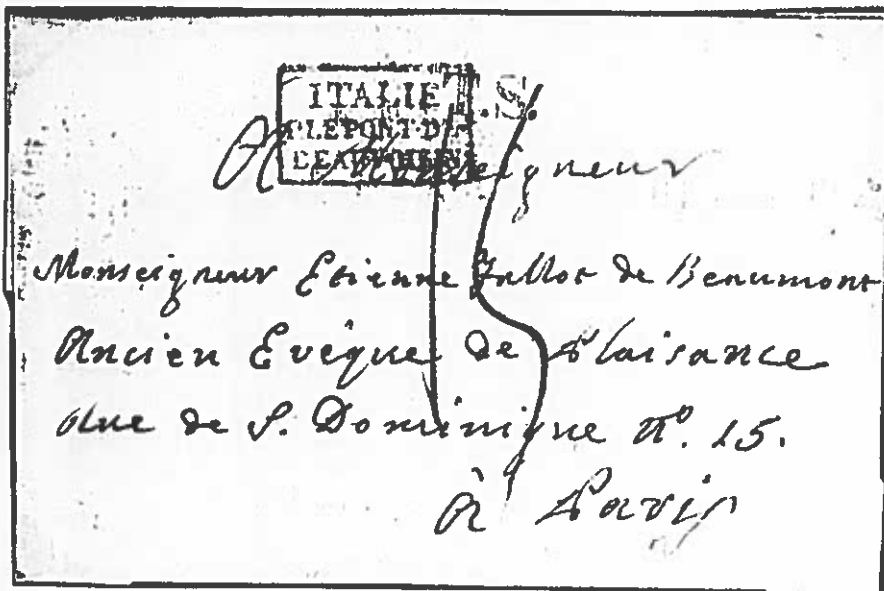 ITALIE
P.LE PONT-DE-
BEAUVOISIN
T.S.
A Monseigneur
15
Monseigneur Etienne Fallot de Beaumont
Ancien Evêque de Plaisance
Rue de S. Dominique n.º 15.
à Paris